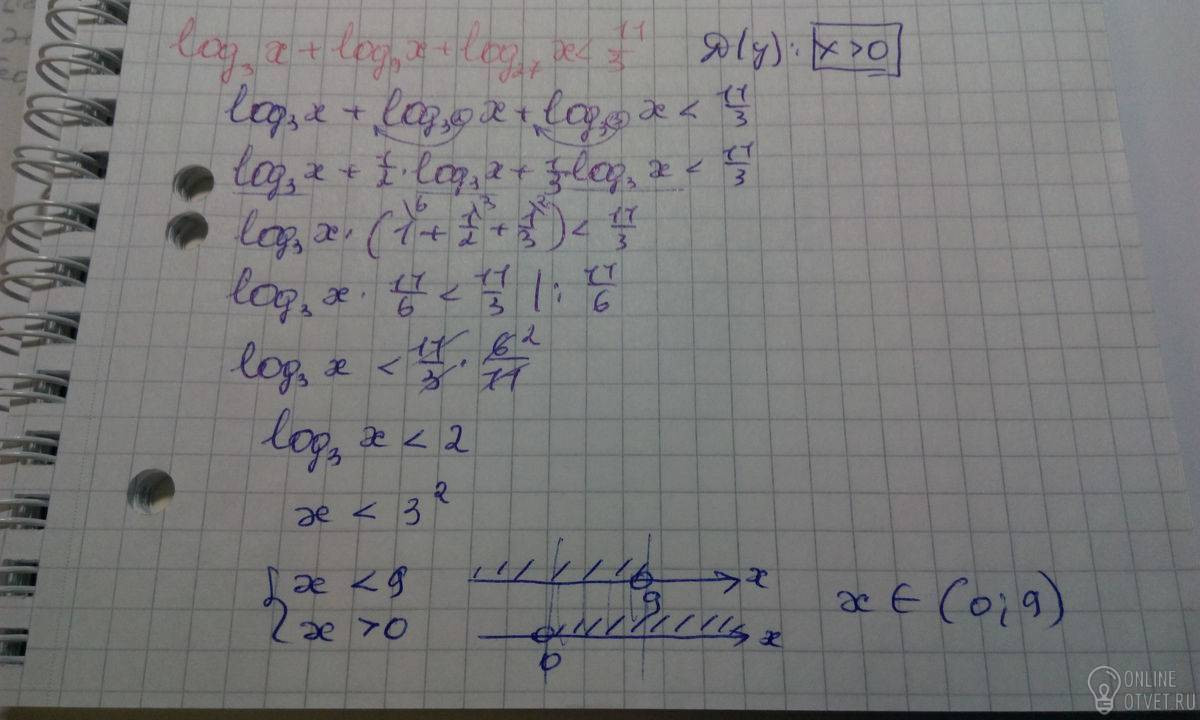 log₃ x + log₉ x + log₂₇ x < 11/3    D(y): x > 0
log₃ x + log₃² x + log₃³ x < 11/3
log₃ x + 1/2 · log₃ x + 1/3 log₃ x < 11/3
log₃ x · (1\⁶ + 1/2\³ + 1/3\²) < 11/3
log₃ x · 11/6 < 11/3 | : 11/6
log₃ x < 11/3 · 6²/11
log₃ x < 2
x < 3²
{ x < 9    9    x
{ x > 0    0    x    x ∈ (0; 9)
ONLINE
OTVET.RU